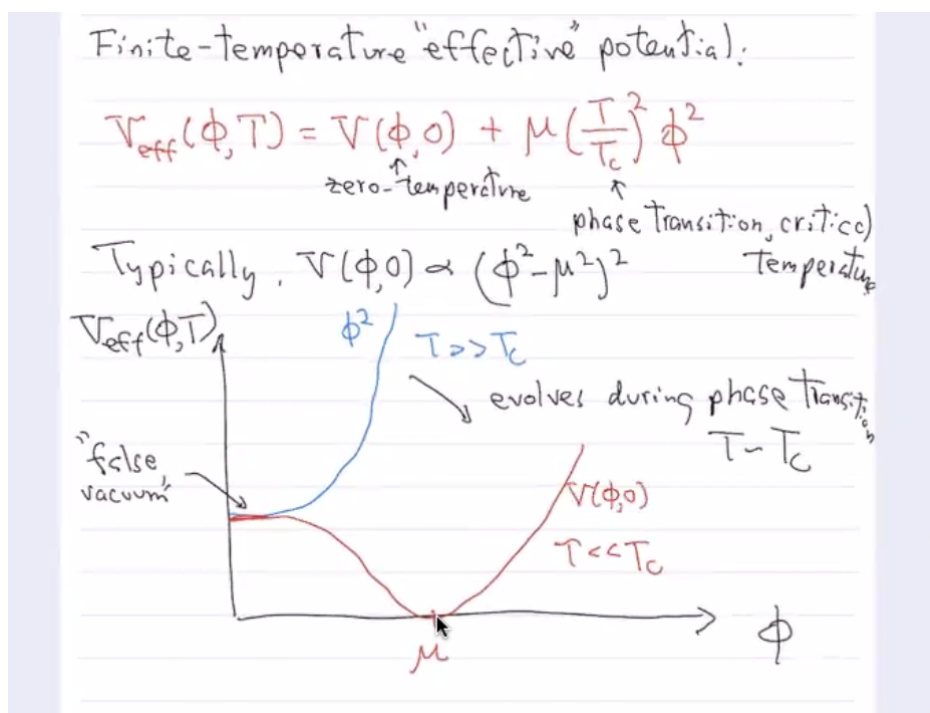 Finite-temperature "effective" potential:
V_eff(ϕ,T) = V(ϕ,0) + μ(T/T_c)² ϕ²
zero-temperature
phase transition, critical
temperature
Typically, V(ϕ,0) ∝ (ϕ²-μ²)²
V_eff(ϕ,T)
ϕ²
T>>T_c
evolves during phase transition
T~T_c
"false
vacuum"
V(ϕ,0)
T<<T_c
ϕ
μ